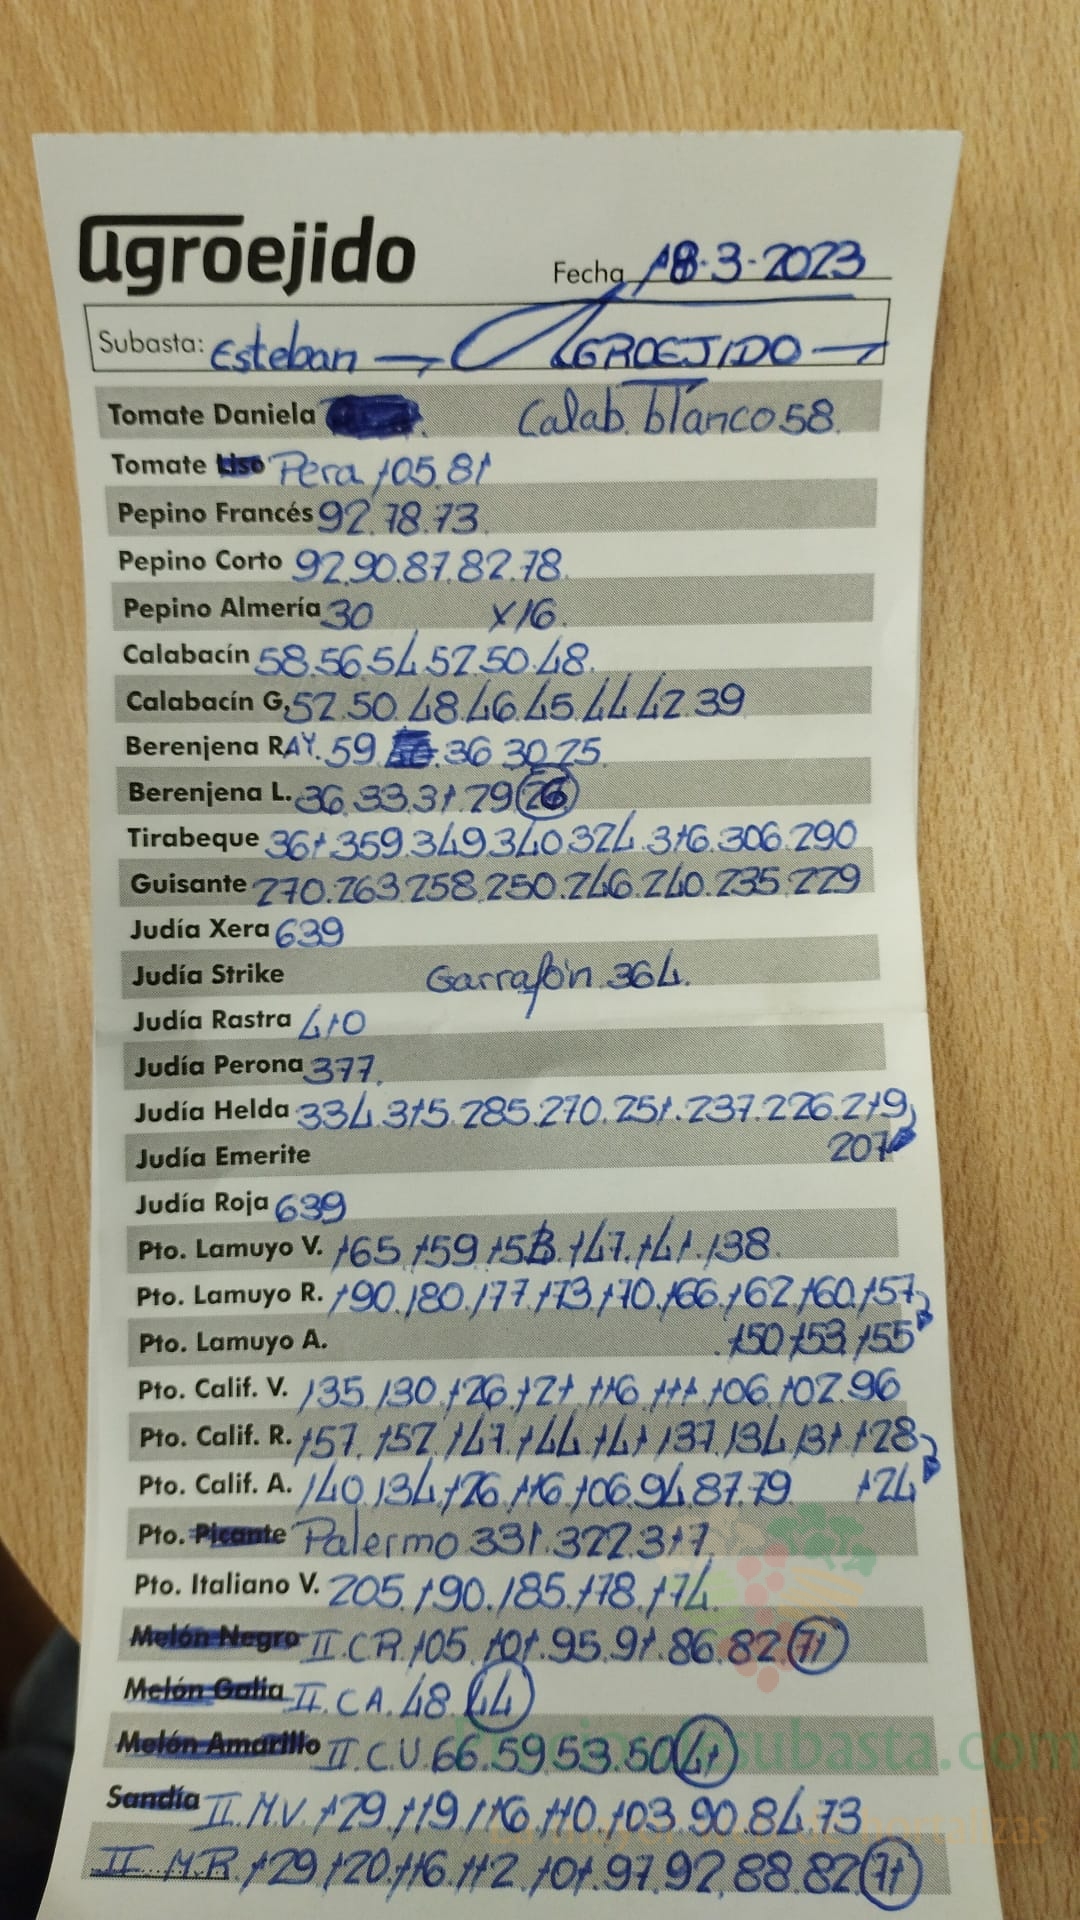 agroejido
Fecha 18-3-2023
Subasta: Esteban → AGROEJIDO →
Tomate Daniela Calab. blanco 58.
Tomate Liso Pera 105.81
Pepino Francés 92.78.73.
Pepino Corto 92.90.87.82.78.
Pepino Almería 30 X16.
Calabacín 58.56.54.52.50.48.
Calabacín G. 52.50.48.46.45.44.42.39
Berenjena RAY. 59. .36.30.25.
Berenjena L. 36.33.31.29 26
Tirabeque 361.359.349.340.324.316.306.290
Guisante 270.263.258.250.246.240.235.229
Judía Xera 639
Judía Strike Garrafón 364.
Judía Rastra 410
Judía Perona 377.
Judía Helda 334.315.285.270.251.237.226.219
Judía Emerite 207
Judía Roja 639
Pto. Lamuyo V. 165.159.153.147.141.138.
Pto. Lamuyo R. 190.180.177.173.170.166.162.160.157
Pto. Lamuyo A. .150.153.155
Pto. Calif. V. 135.130.126.121.116.111.106.102.96
Pto. Calif. R. 157.152.147.144.141.137.134.131.128
Pto. Calif. A. 140.134.126.116.106.94.87.79 124
Pto. Picante Palermo 331.322.317.
Pto. Italiano V. 205.190.185.178.174.
Melón Negro II.C.R.105.101.95.91.86.82 71
Melón Galia II.C.A.48.44
Melón Amarillo II.C.V.66.59.53.50 41
Sandía II.M.V.129.119.116.110.103.90.84.73
II.M.R.129.120.116.112.101.97.92.88.82 71